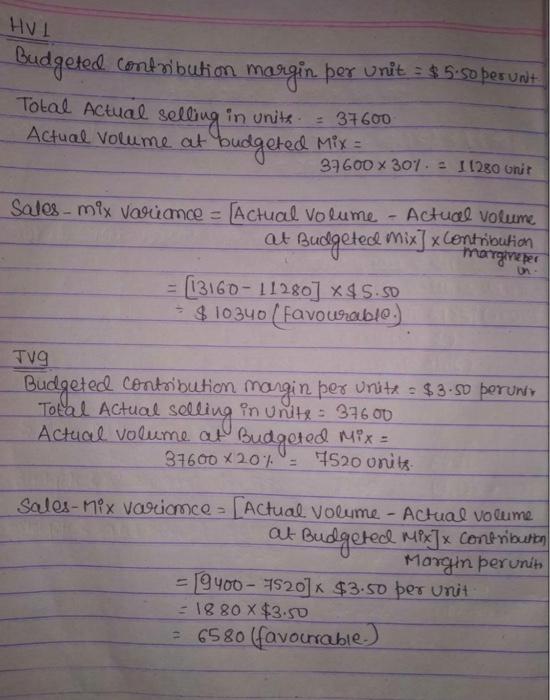 HV1
Budgeted contribution margin per unit = $5.50 per unit
Total Actual selling in units. = 37600
Actual volume at budgeted Mix =
37600 x 30%. = 11280 unit
Sales-mix variance = [Actual volume - Actual volume
at Budgeted mix] x Contribution
margine per
un.
= [13160 - 11280] x $5.50
= $10340 (Favourable.)
JV9
Budgeted contribution margin per units = $3.50 per unit
Total Actual selling in units = 37600
Actual volume at Budgeted Mix =
37600 x 20% = 7520 units.
Sales-Mix variance = [Actual volume - Actual volume
at Budgeted Mix] x contribution
Margin per units
= [9400 - 7520] x $3.50 per unit
= 1880 x $3.50
= 6580 (favourable.)